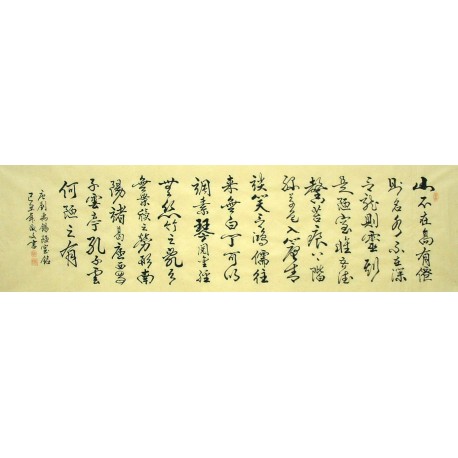 山不在高有僊
則名水不在深
有龍則靈斯
是陋室惟吾德
馨苔痕上階
綠草色入簾青
談笑有鴻儒往
來無白丁可以
調素琴閱金經
無絲竹之亂耳
無案牘之勞形南
陽諸葛廬西蜀
子雲亭孔子云
何陋之有
唐劉禹錫陋室銘
書